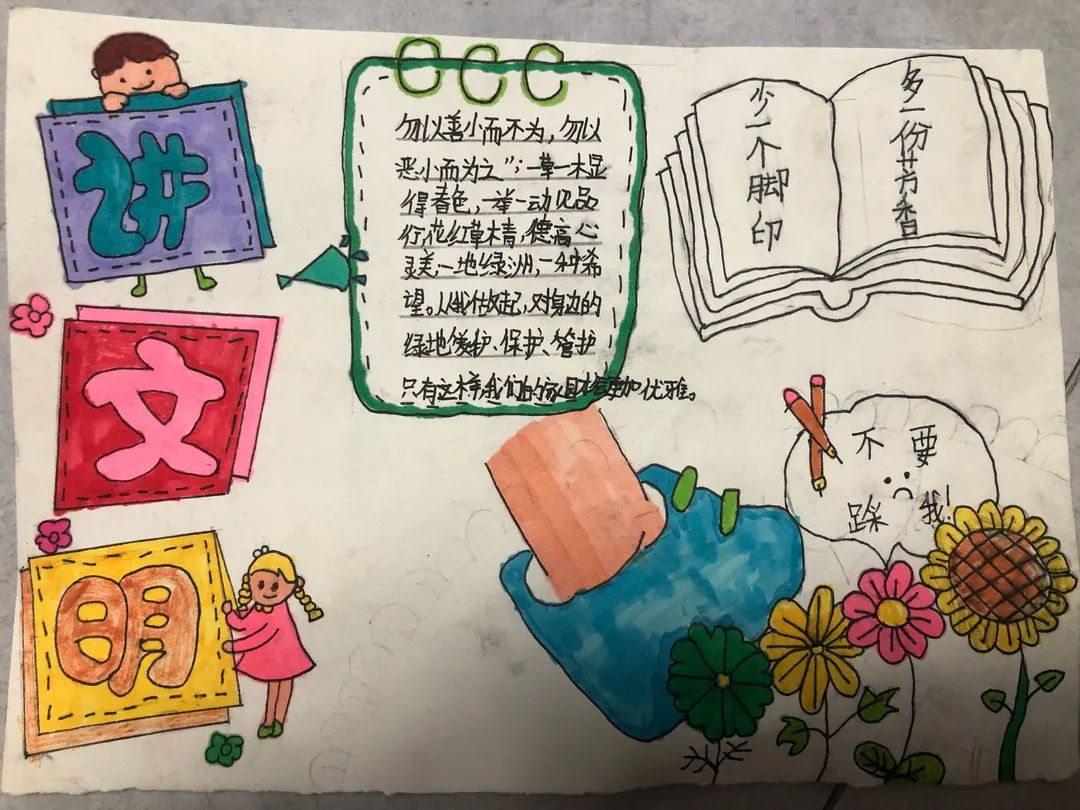 讲
文
明
勿以善小而不为，勿以
恶小而为之”；一草一木显
得春色，一举一动见品
行，花红草精，德高心
灵美，一地绿洲，一种希
望。从我做起，对身边的
绿地爱护、保护、管护
只有这样我们的家园才能更加优雅。
少一个脚印
多一份芳香
不要
踩我！